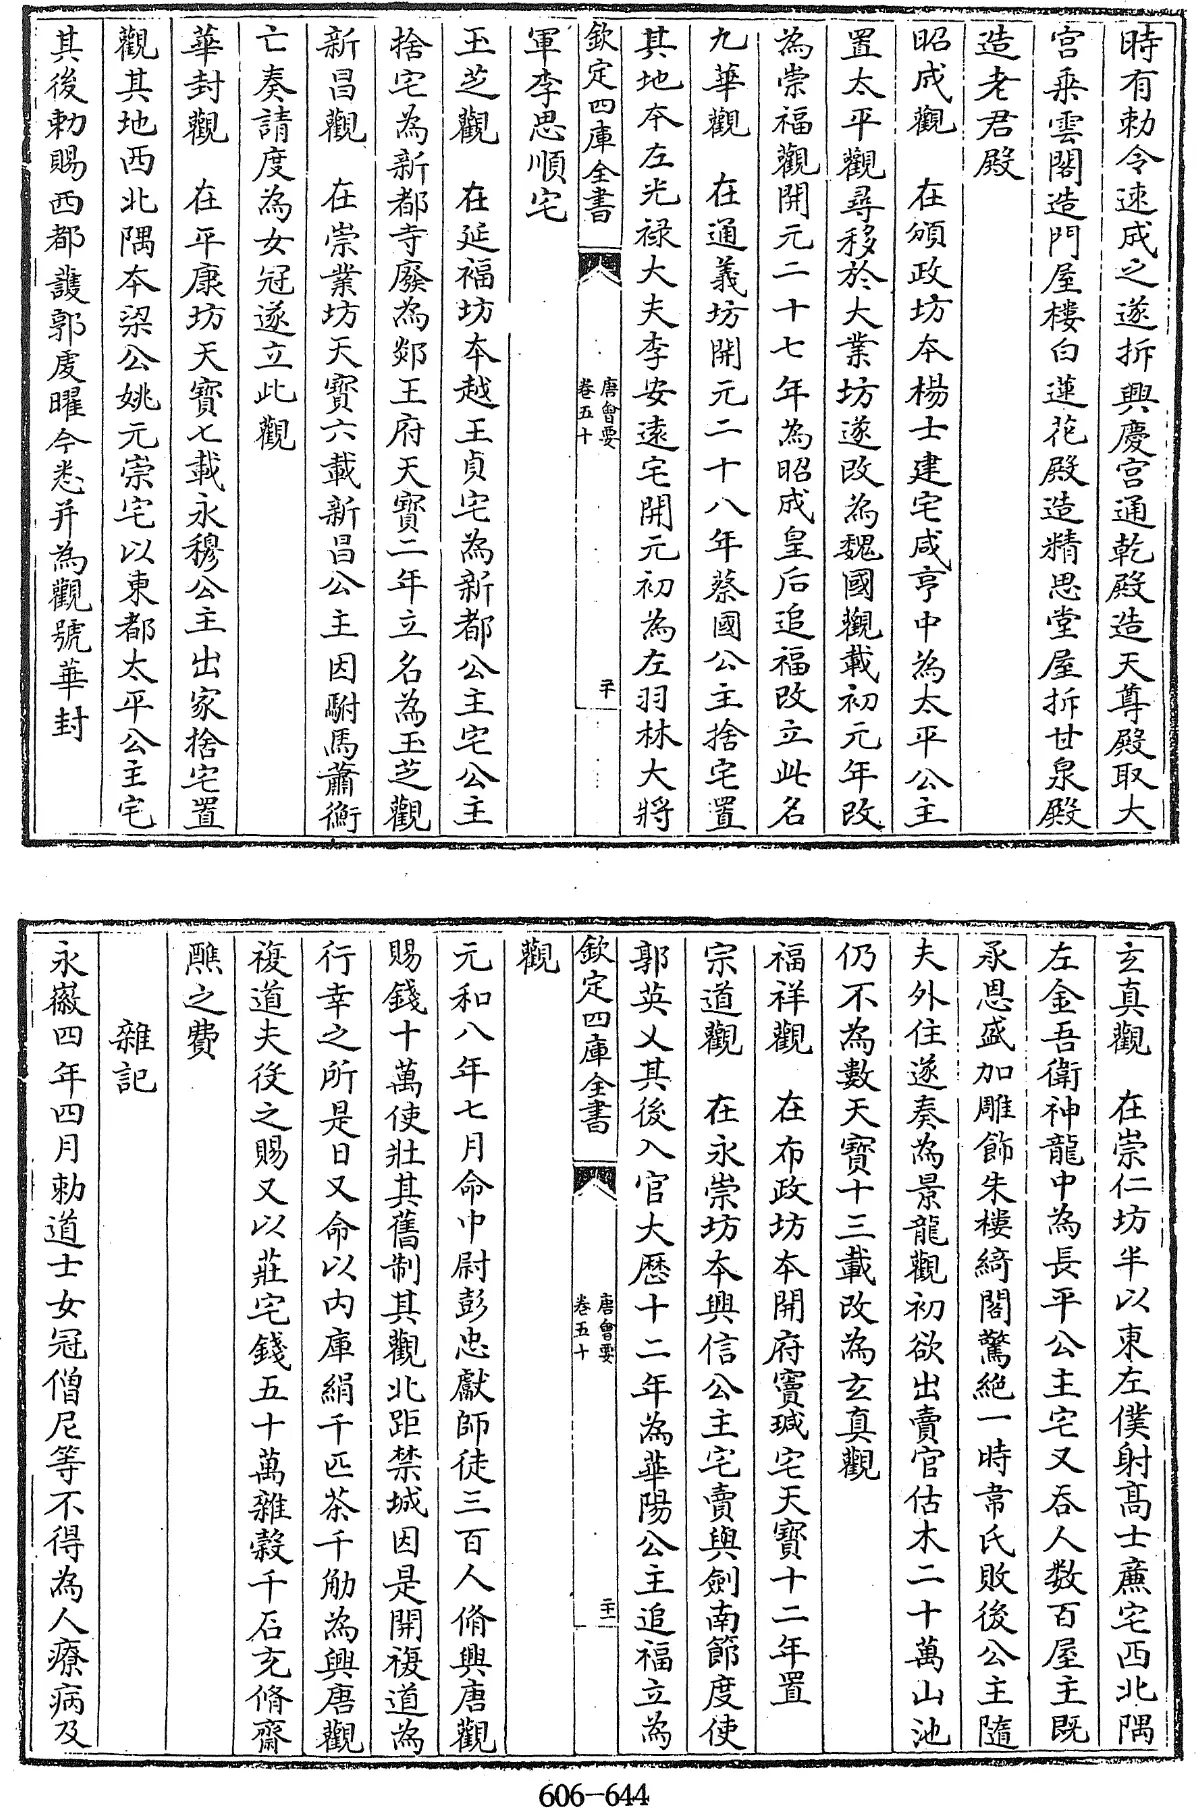 時有勅令速成之遂拆興慶宫通乾殿造天尊殿取大
宫乗雲閣造門屋樓白蓮花殿造精思堂屋拆甘泉殿
造老君殿
昭成觀　在頒政坊本楊士建宅咸亨中為太平公主
置太平觀尋移於大業坊遂改為魏國觀載初元年改
為崇福觀開元二十七年為昭成皇后追福改立此名
九華觀　在通義坊開元二十八年蔡國公主捨宅置
其地本左光禄大夫李安遠宅開元初為左羽林大將
欽定四庫全書
唐會要
卷五十
二十
軍李思順宅
玉芝觀　在延福坊本越王貞宅為新都公主宅公主
捨宅為新都寺廢為郯王府天寳二年立名為玉芝觀
新昌觀　在崇業坊天寳六載新昌公主因駙馬蕭衡
亡奏請度為女冠遂立此觀
華封觀　在平康坊天寳七載永穆公主出家捨宅置
觀其地西北隅本梁公姚元崇宅以東都太平公主宅
其後勅賜西都䕶郭虔曜今悉并為觀號華封
玄真觀　在崇仁坊半以東左僕射髙士㢘宅西北隅
左金吾衛神龍中為長平公主宅又吞人数百屋主既
承恩盛加雕飾朱樓綺閣驚絶一時韋氏敗後公主隨
夫外住遂奏為景龍觀初欲出賣官估木二十萬山池
仍不為數天寳十三載改為玄真觀
福祥觀　在布政坊本開府竇瑊宅天寳十二年置
宗道觀　在永崇坊本興信公主宅賣與劍南節度使
郭英乂其後入官大歴十二年為華陽公主追福立為
欽定四庫全書
唐會要
卷五十
二十一
觀
元和八年七月命中尉彭忠獻師徒三百人脩興唐觀
賜錢十萬使壯其舊制其觀北距禁城因是開複道為
行幸之所是日又命以内庫絹千匹茶千觔為興唐觀
複道夫役之賜又以莊宅錢五十萬雜穀千石充脩齋
醮之費
雜記
永徽四年四月勅道士女冠僧尼等不得為人療病及
606-644